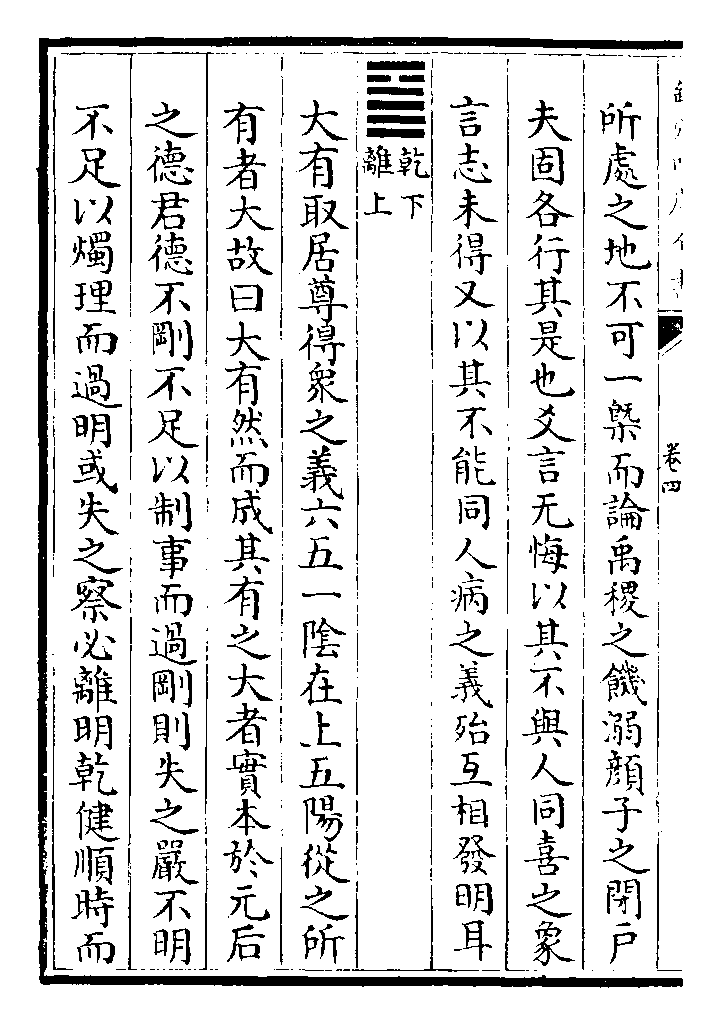 卷四
所處之地不可一槩而論禹稷之饑溺顔子之閉戶
夫固各行其是也爻言无悔以其不與人同喜之象
言志未得又以其不能同人病之義殆互相發明耳
乾下
離上
大有取居尊得衆之義六五一陰在上五陽從之所
有者大故曰大有然而成其有之大者實本於元后
之德君德不剛不足以制事而過剛則失之嚴不明
不足以燭理而過明或失之察必離明乾健順時而